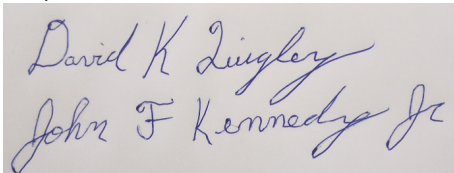 David K Quigley
John F Kennedy Jr